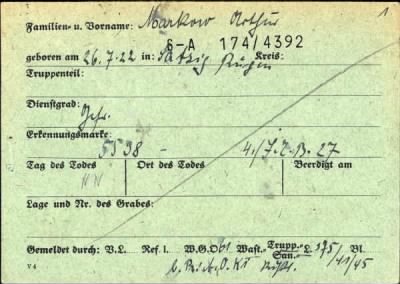 1
Familien- u. Vorname: Markow Arthur
S-A 174/4392
geboren am 26.7.22 in: Sassnitz Kreis: Rügen
Truppenteil:
Dienstgrad: Gefr.
Erkennungsmarke:
5538 - 4./J.E.B. 27
Tag des Todes Ort des Todes Beerdigt am
Lage und Nr. des Grabes:
Gemeldet durch: V.L. Ref I. W.G.O 61 Wast.- Trupp.- San.- L. 175/41/45 Bl.
V 4